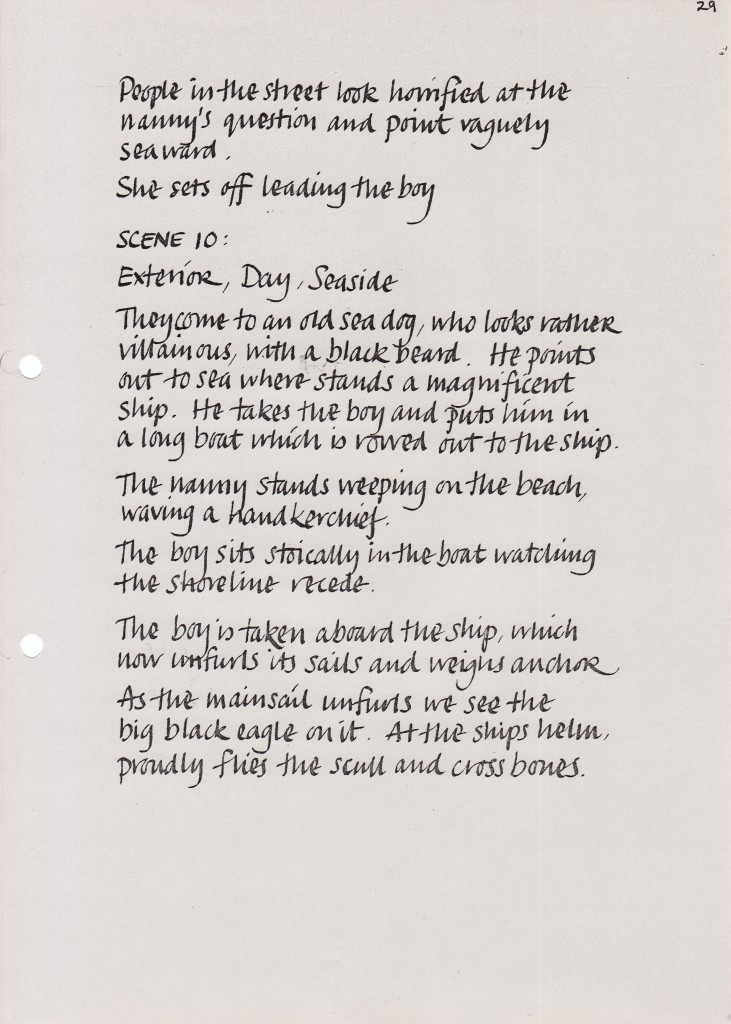 29
People in the street look horrified at the
nanny's question and point vaguely
seaward.
She sets off leading the boy
SCENE 10:
Exterior, Day, Seaside
They come to an old sea dog, who looks rather
villainous, with a black beard. He points
out to sea where stands a magnificent
ship. He takes the boy and puts him in
a long boat which is rowed out to the ship.
The nanny stands weeping on the beach,
waving a handkerchief.
The boy sits stoically in the boat watching
the shoreline recede.
The boy is taken aboard the ship, which
now unfurls its sails and weighs anchor
As the mainsail unfurls we see the
big black eagle on it. At the ships helm,
proudly flies the scull and cross bones.